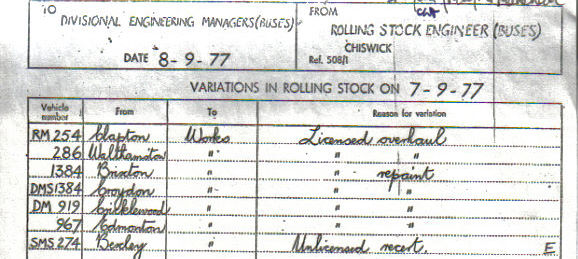 TO
DIVISIONAL ENGINEERING MANAGERS (BUSES)
DATE 8-9-77
FROM
ROLLING STOCK ENGINEER (BUSES)
CHISWICK
Ref. 508/1
VARIATIONS IN ROLLING STOCK ON 7-9-77
Vehicle number From To Reason for variation
RM 254 Clapton Works Licensed overhaul
286 Walthamstow " " "
1384 Brixton " " repaint
DMS1384 Croydon " " "
DM 919 Cricklewood " " "
967 Edmonton " " "
SMS 274 Bexley " Unlicensed recert. E